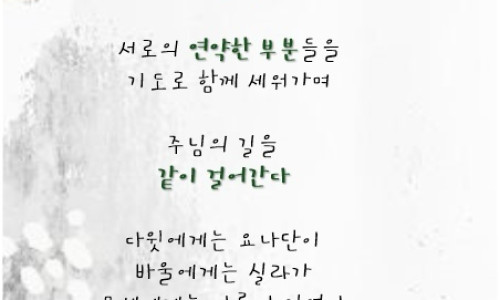 서로의 연약한 부분들을
기도로 함께 세워가며
주님의 길을
같이 걸어간다
다윗에게는 요나단이
바울에게는 실라가